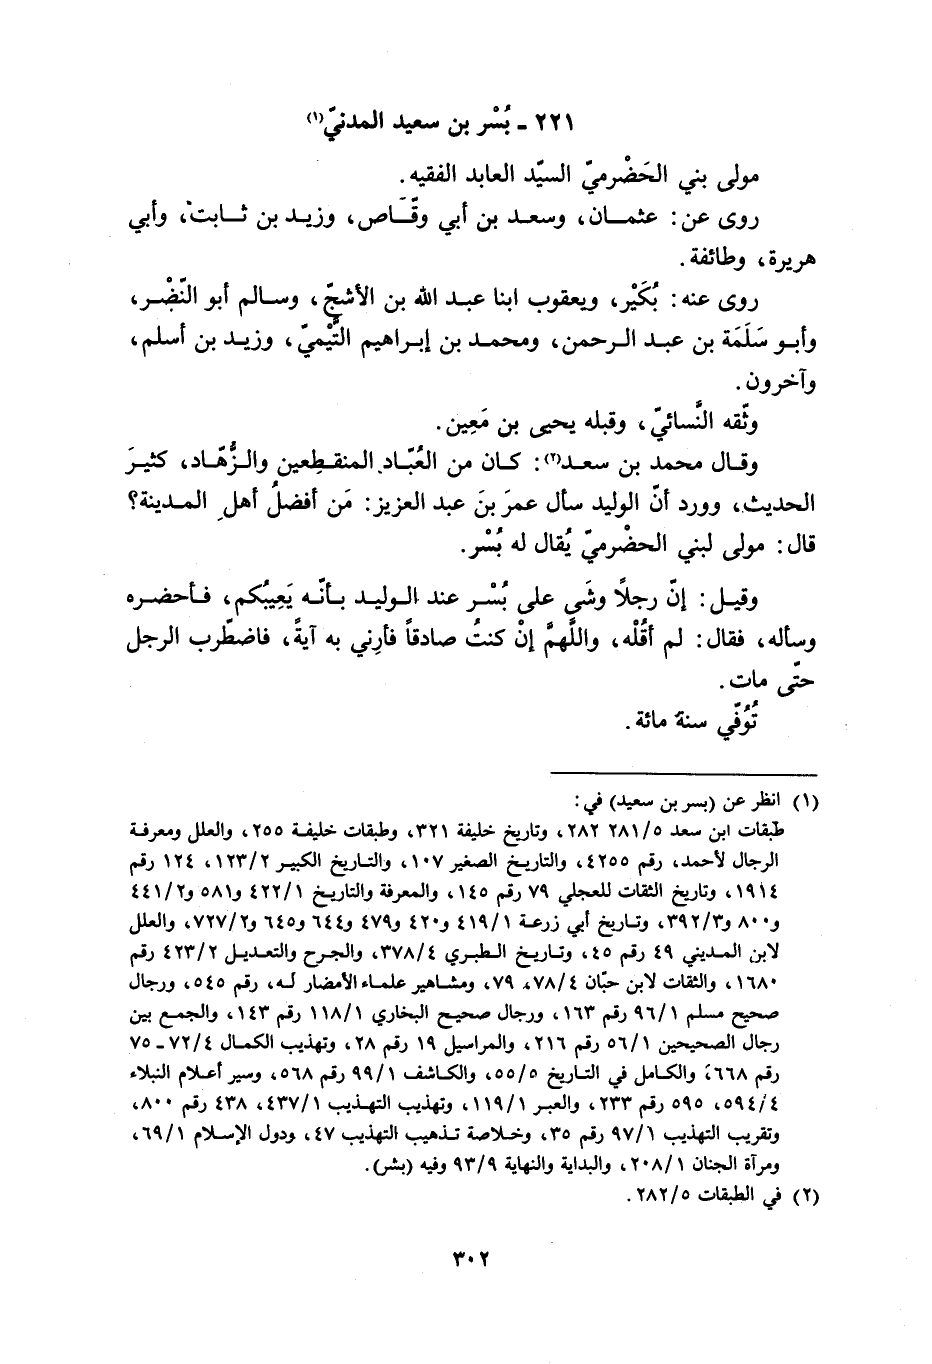 ٢٢١ - بُسْر بن سعيد المدنيّ(١)
مولى بني الحَضْرميّ السيّد العابد الفقيه.
روى عن: عثمـان، وسعـد بن أبي وقّـاص، وزيـد بن ثـابت، وأبي
هريرة، وطائفة.
روى عنه: بُكَيْر، ويعقوب ابنا عبـد الله بن الأشجّ، وسـالم أبو النّضْـر،
وأبـو سَلَمَة بن عبـد الـرحمن، ومحمـد بن إبـراهيم التَّيْميّ، وزيـد بن أسلم،
وآخرون.
وثّقه النَّسائيّ، وقبله يحيى بن مَعِين.
وقـال محمد بن سعـد(٢): كـان من العُبّـاد المنقـطعين والـزُّهّـاد، كثيـرَ
الحديث، وورد أنّ الوليد سأل عمرَ بنَ عبد العزيز: مَن أفضلُ أهلِ المـدينة؟
قال: مولى لبني الحضْرميّ يُقال له بُسْر.
وقيـل: إنّ رجلًا وشَى على بُسْـر عند الـوليـد بـأنّـه يَعِيبُكم، فـأحضـره
وسأله، فقال: لم أقُلْه، واللَّهمَّ إنْ كنتُ صادقاً فأرِني به آيةً، فاضطّرب الرجل
حتّى مات.
تُوُفّي سنة مائة.
(١) انظر عن (بسر بن سعيد) في:
طبقات ابن سعد ٢٨١/٥ ٢٨٢، وتاريخ خليفة ٣٢١، وطبقات خليفـة ٢٥٥، والعلل ومعرفـة
الرجال لأحمد، رقم ٤٢٥٥، والتاريخ الصغير ١٠٧، والتـاريخ الكبيـر ١٢٣/٢، ١٢٤ رقم
١٩١٤، وتاريخ الثقات للعجلي ٧٩ رقم ١٤٥، والمعرفة والتاريـخ ٤٢٢/١ و٥٨١ و٤٤١/٢
و٨٠٠ و٣٩٢/٣، وتـاريخ أبي زرعـة ٤١٩/١ و٤٢٠ و٤٧٩ و٦٤٤ و٦٤٥ و٧٢٧/٢، والعلل
لابن المـديني ٤٩ رقم ٤٥، وتـاريـخ الـطبري ٣٧٨/٤، والجـرح والتعـديـل ٤٢٣/٢ رقم
١٦٨٠، والثقات لابن حبّان ٧٨/٤، ٧٩، ومشـاهير علمـاء الأمصـار لـه، رقم ٥٤٥، ورجال
صحيح مسلم ٩٦/١ رقم ١٦٣، ورجال صحيـح البخاري ١١٨/١ رقم ١٤٣، والجمع بين
رجال الصحيحين ٥٦/١ رقم ٢١٦، والمراسيل ١٩ رقم ٢٨، وتهذيب الكمال ٧٢/٤ - ٧٥
رقم ٦٦٨، والكامل في التـاريخ ٥٥/٥، والكاشف ٩٩/١ رقم ٥٦٨، وسير أعـلام النبلاء
٥٩٤/٤، ٥٩٥ رقم ٢٣٣، والعبـر ١١٩/١، وتهذيب التهـذيب ٤٣٧/١، ٤٣٨ رقم ٨٠٠،
وتقريب التهذيب ٩٧/١ رقم ٣٥، وخـلاصة تـذهيب التهذيب ٤٧، ودول الإسـلام ٦٩/١،
ومرآة الجنان ٢٠٨/١، والبداية والنهاية ٩٣/٩ وفيه (بشر).
(٢) في الطبقات ٢٨٢/٥.
٣٠٢